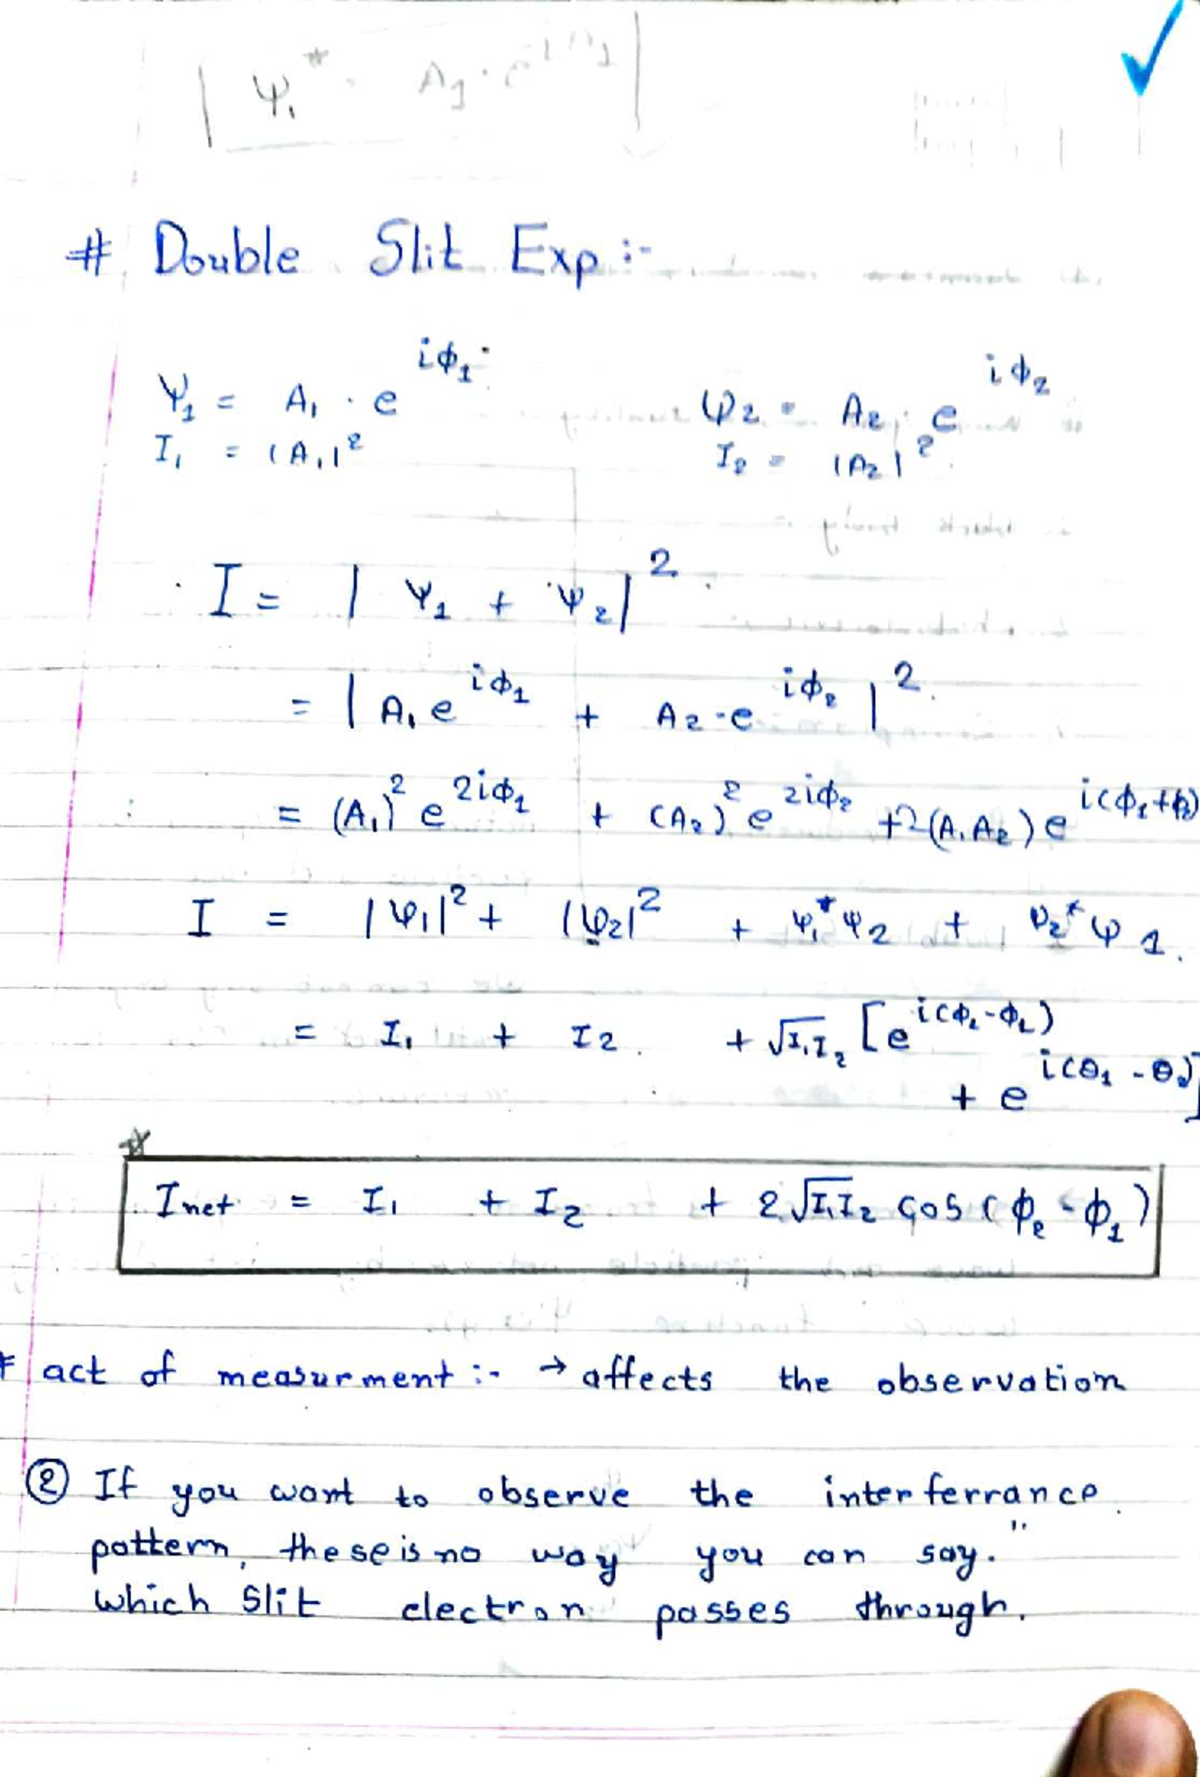 Ψ₁* = A₁ · e
# Double Slit Exp :-
Ψ₁ = A₁ · e^{iϕ₁} φ₂ = A₂ · e^{iϕ₂}
I₁ = |A₁|² I₂ = |A₂|²
I = | Ψ₁ + Ψ₂ |²
= | A₁ e^{iϕ₁} + A₂ · e^{iϕ₂} |²
= (A₁)² e^{2iϕ₁} + (A₂)² e^{2iϕ₂} + 2(A₁A₂) e^{i(ϕ₁+ϕ₂)}
I = |φ₁|² + |φ₂|² + φ₁* Ψ₂ + Ψ₂* φ₁.
= I₁ + I₂ + √I₁I₂ [e^{i(ϕ₂-ϕ₁)}
+ e^{i(θ₁ - θ₂)}]
I net = I₁ + I₂ + 2√I₁I₂ cos (ϕ₂ - ϕ₁)
# act of measurment :- → affects the observation
② If you want to observe the interferrance
pattern, these is no way you can say. "
which Slit electron passes through.